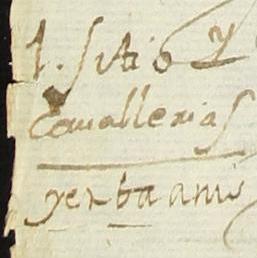 1. sitio y
Cauallerias
yerba anis